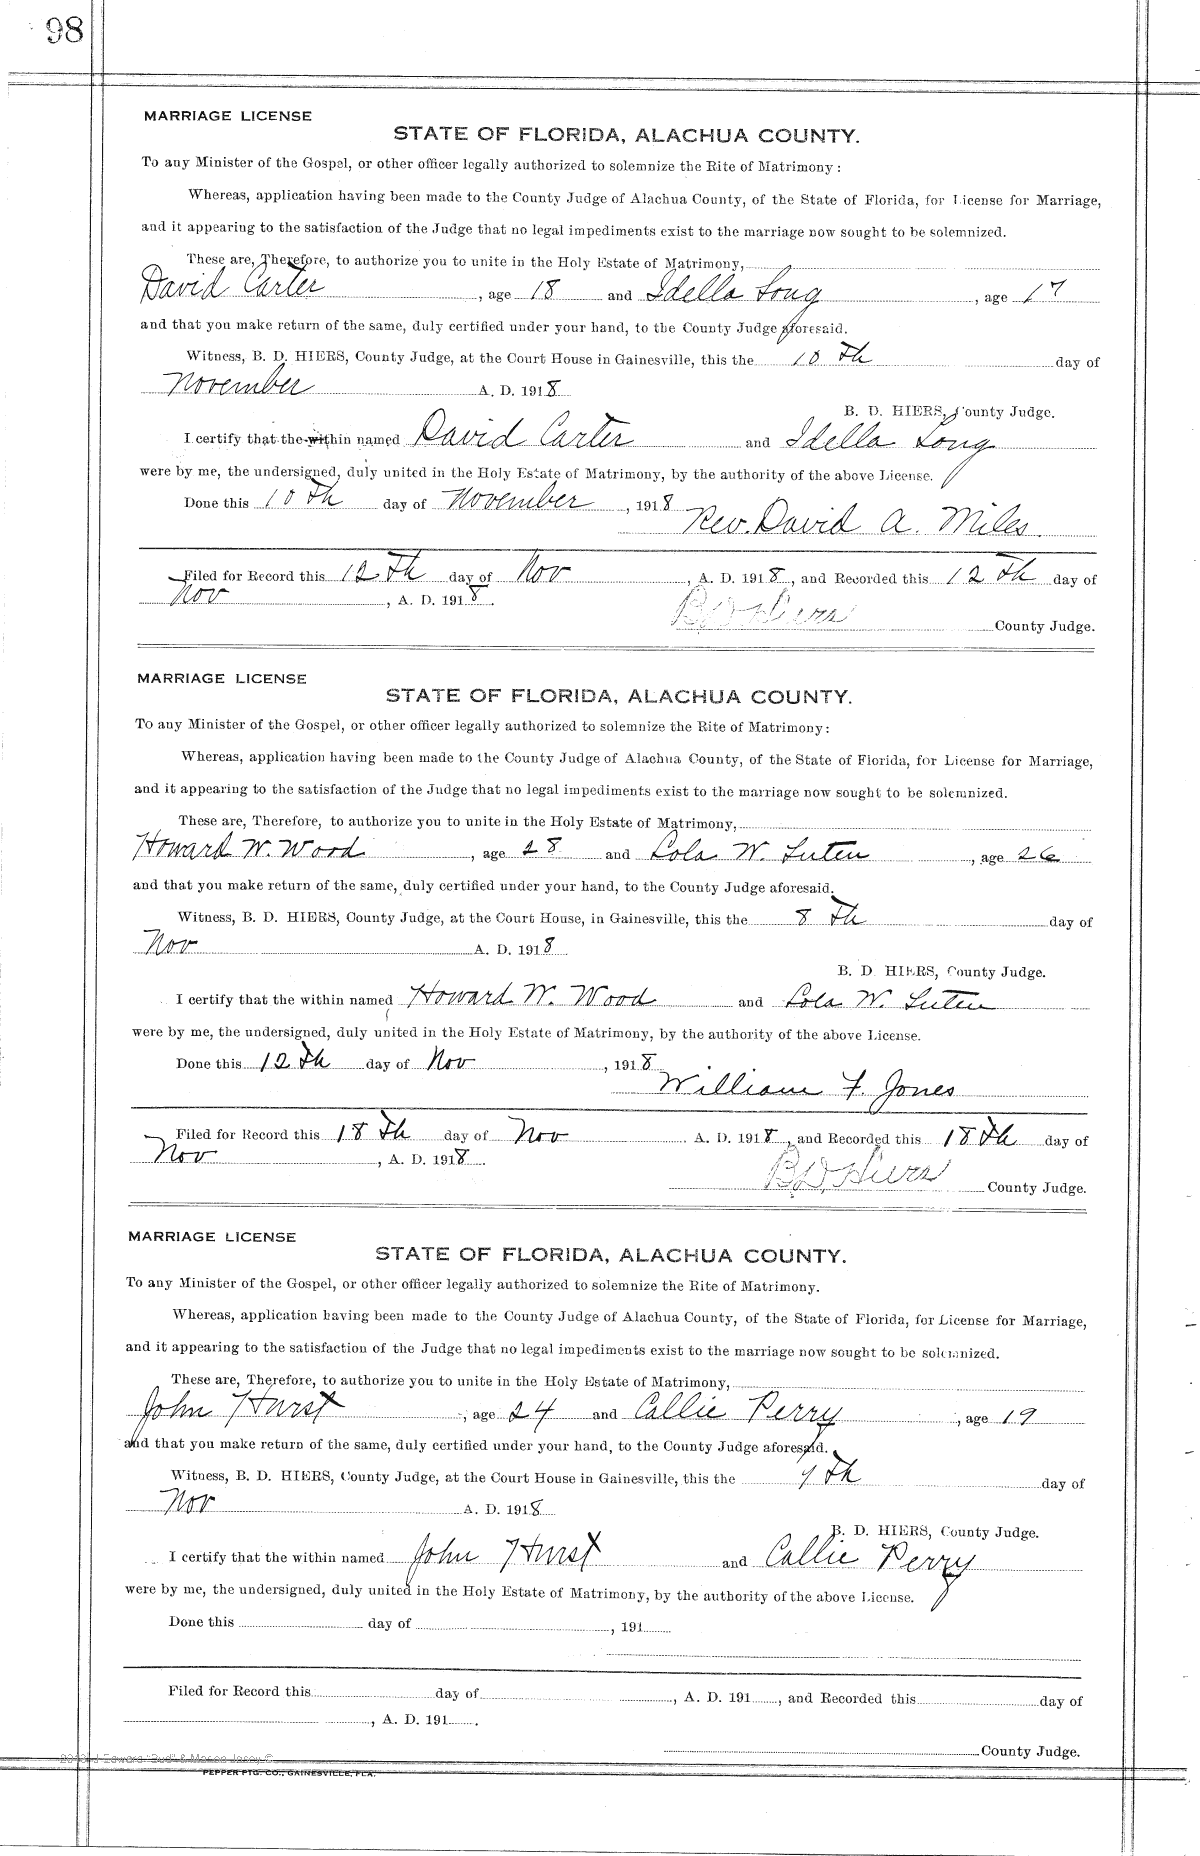 98
MARRIAGE LICENSE
STATE OF FLORIDA, ALACHUA COUNTY.
To any Minister of the Gospel, or other officer legally authorized to solemnize the Rite of Matrimony:
Whereas, application having been made to the County Judge of Alachua County, of the State of Florida, for License for Marriage,
and it appearing to the satisfaction of the Judge that no legal impediments exist to the marriage now sought to be solemnized.
These are, Therefore, to authorize you to unite in the Holy Estate of Matrimony,
David Carter, age 18 and Idella Long, age 17
and that you make return of the same, duly certified under your hand, to the County Judge aforesaid.
Witness, B. D. HIERS, County Judge, at the Court House in Gainesville, this the 10 Th day of
November A. D. 1918
B. D. HIERS, County Judge.
I certify that the within named David Carter and Idella Long
were by me, the undersigned, duly united in the Holy Estate of Matrimony, by the authority of the above License.
Done this 10 Th day of November, 1918
Rev. David A. Miles.
Filed for Record this 12 Th day of Nov, A. D. 1918, and Recorded this 12 Th day of
Nov, A. D. 1918.
B D Hiers County Judge.
MARRIAGE LICENSE
STATE OF FLORIDA, ALACHUA COUNTY.
To any Minister of the Gospel, or other officer legally authorized to solemnize the Rite of Matrimony:
Whereas, application having been made to the County Judge of Alachua County, of the State of Florida, for License for Marriage,
and it appearing to the satisfaction of the Judge that no legal impediments exist to the marriage now sought to be solemnized.
These are, Therefore, to authorize you to unite in the Holy Estate of Matrimony,
Howard W. Wood, age 28 and Lola W. Luten, age 26
and that you make return of the same, duly certified under your hand, to the County Judge aforesaid.
Witness, B. D. HIERS, County Judge, at the Court House, in Gainesville, this the 8 Th day of
Nov A. D. 1918
B. D. HIERS, County Judge.
I certify that the within named Howard W. Wood and Lola W. Luten
were by me, the undersigned, duly united in the Holy Estate of Matrimony, by the authority of the above License.
Done this 12 Th day of Nov, 1918
William F. Jones
Filed for Record this 18 Th day of Nov A. D. 1918, and Recorded this 18 Th day of
Nov, A. D. 1918.
B D Hiers County Judge.
MARRIAGE LICENSE
STATE OF FLORIDA, ALACHUA COUNTY.
To any Minister of the Gospel, or other officer legally authorized to solemnize the Rite of Matrimony.
Whereas, application having been made to the County Judge of Alachua County, of the State of Florida, for License for Marriage,
and it appearing to the satisfaction of the Judge that no legal impediments exist to the marriage now sought to be solemnized.
These are, Therefore, to authorize you to unite in the Holy Estate of Matrimony,
John Hurst, age 24 and Callie Perry, age 19
and that you make return of the same, duly certified under your hand, to the County Judge aforesaid.
Witness, B. D. HIERS, County Judge, at the Court House in Gainesville, this the 9 Th day of
Nov A. D. 1918
B. D. HIERS, County Judge.
I certify that the within named John Hurst and Callie Perry
were by me, the undersigned, duly united in the Holy Estate of Matrimony, by the authority of the above License.
Done this day of, 191
Filed for Record this day of, A. D. 191, and Recorded this day of
, A. D. 191.
County Judge.
PEPPER PTG. CO., GAINESVILLE, FLA.